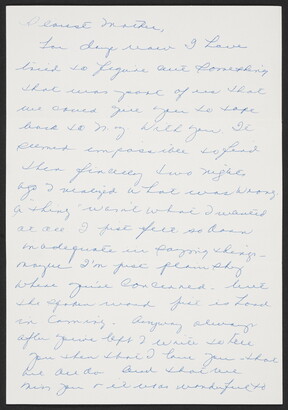 Dearest Mother,
For days now I have
tried to figure out something
that was good of us that
we could give you to take
back to N.Y. with you. It
seemed impossible to find
then finally two nights
ago I realized what was wrong
a "thing" wasn't what I wanted
at all I just feel so darn
inadequate in saying things -
maybe I'm just plain shy
where you're concerned. but
the spoken word just is hard
in coming. Anyway always
after you've left I write to tell
you then that I love you - that
we all do and that we
miss you & it was wonderful to